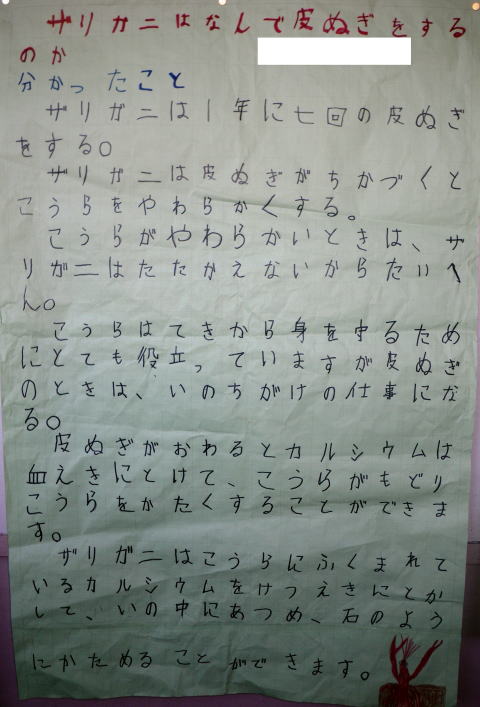 ザリガニはなんで皮ぬぎをする
のか
分かったこと
ザリガニは1年に七回の皮ぬぎ
をする。
ザリガニは皮ぬぎがちかづくと
こうらをやわらかくする。
こうらがやわらかいときは、ザ
リガニはたたかえないからたいへ
ん。
こうらはてきから身を守るため
にとても役立っていますが皮ぬぎ
のときは、いのちがけの仕事にな
る。
皮ぬぎがおわるとカルシウムは
血えきにとけて、こうらがもどり
こうらをかたくすることができま
す。
ザリガニはこうらにふくまれて
いるカルシウムをけつえきにとか
して、いの中にあつめ、石のよう
にかためることができます。